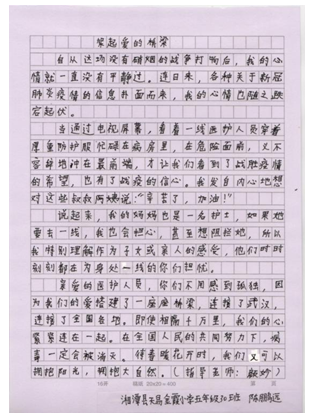 架起爱的桥梁
自从这场没有硝烟的战争打响后，我的心
情就一直没有平静过。连日来，各种关于新冠
肺炎疫情的信息扑面而来，我的心情也随之跌
宕起伏。
当通过电视屏幕，看着一线医护人员穿着
厚重防护服忙碌在病房里，在危险面前，义不
容辞地冲在最前端，才让我们看到了战胜疫情
的希望，也有了战疫的信心。我发自内心地想
对这些叔叔阿姨说："辛苦了，加油！"
说起来，我的妈妈也是一名护士，如果她
要去一线，我也会担心，甚至想阻拦她，所以
我特别理解作为子女或亲人的感受，他们时时
刻刻都在为身处一线的你们担忧。
亲爱的医护人员，你们不用感到孤独，因
为我们的爱搭建了一座座桥梁，连接了武汉，
连接了全国各地。即使相隔千万里，我们的心
紧紧连在一起，在全国人民的共同努力下，病
毒一定会被消灭。待春暖花开时，我们又可以
拥抱阳光，拥抱大自然。（指导老师：）
16开 20x20=400
湘潭县天易金霞小学五年级10班 陈鹏远